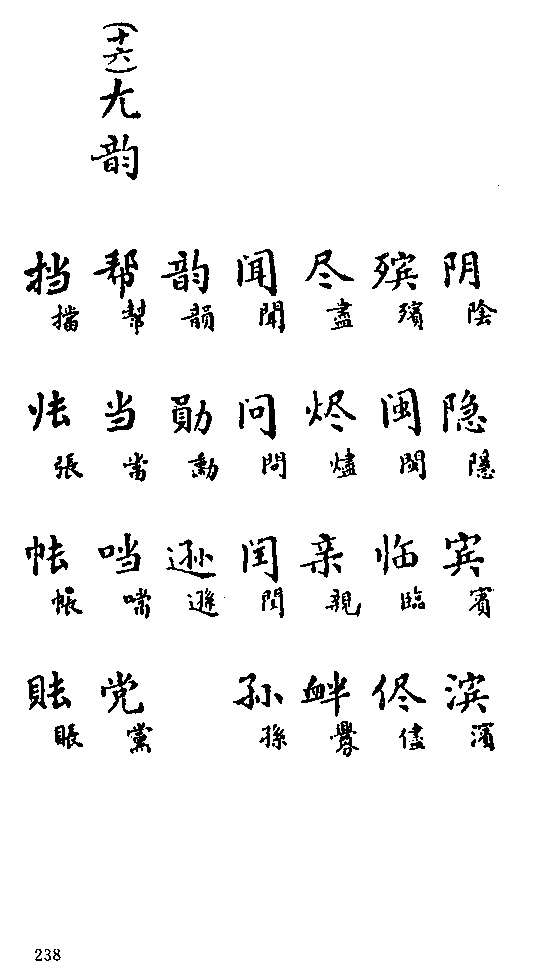 阴 陰 隐 隱 宾 賓 滨 濱
殡 殯 闽 閩 临 臨 侭 儘
尽 盡 烬 燼 亲 親 衅 釁
闻 聞 问 問 闰 閏 孙 孫
韵 韻 勛 勳 逊 遜
(十六)ㄤ韵
帮 幫 当 當 噹 党 黨
挡 擋 张 張 帐 帳 账 賬
238